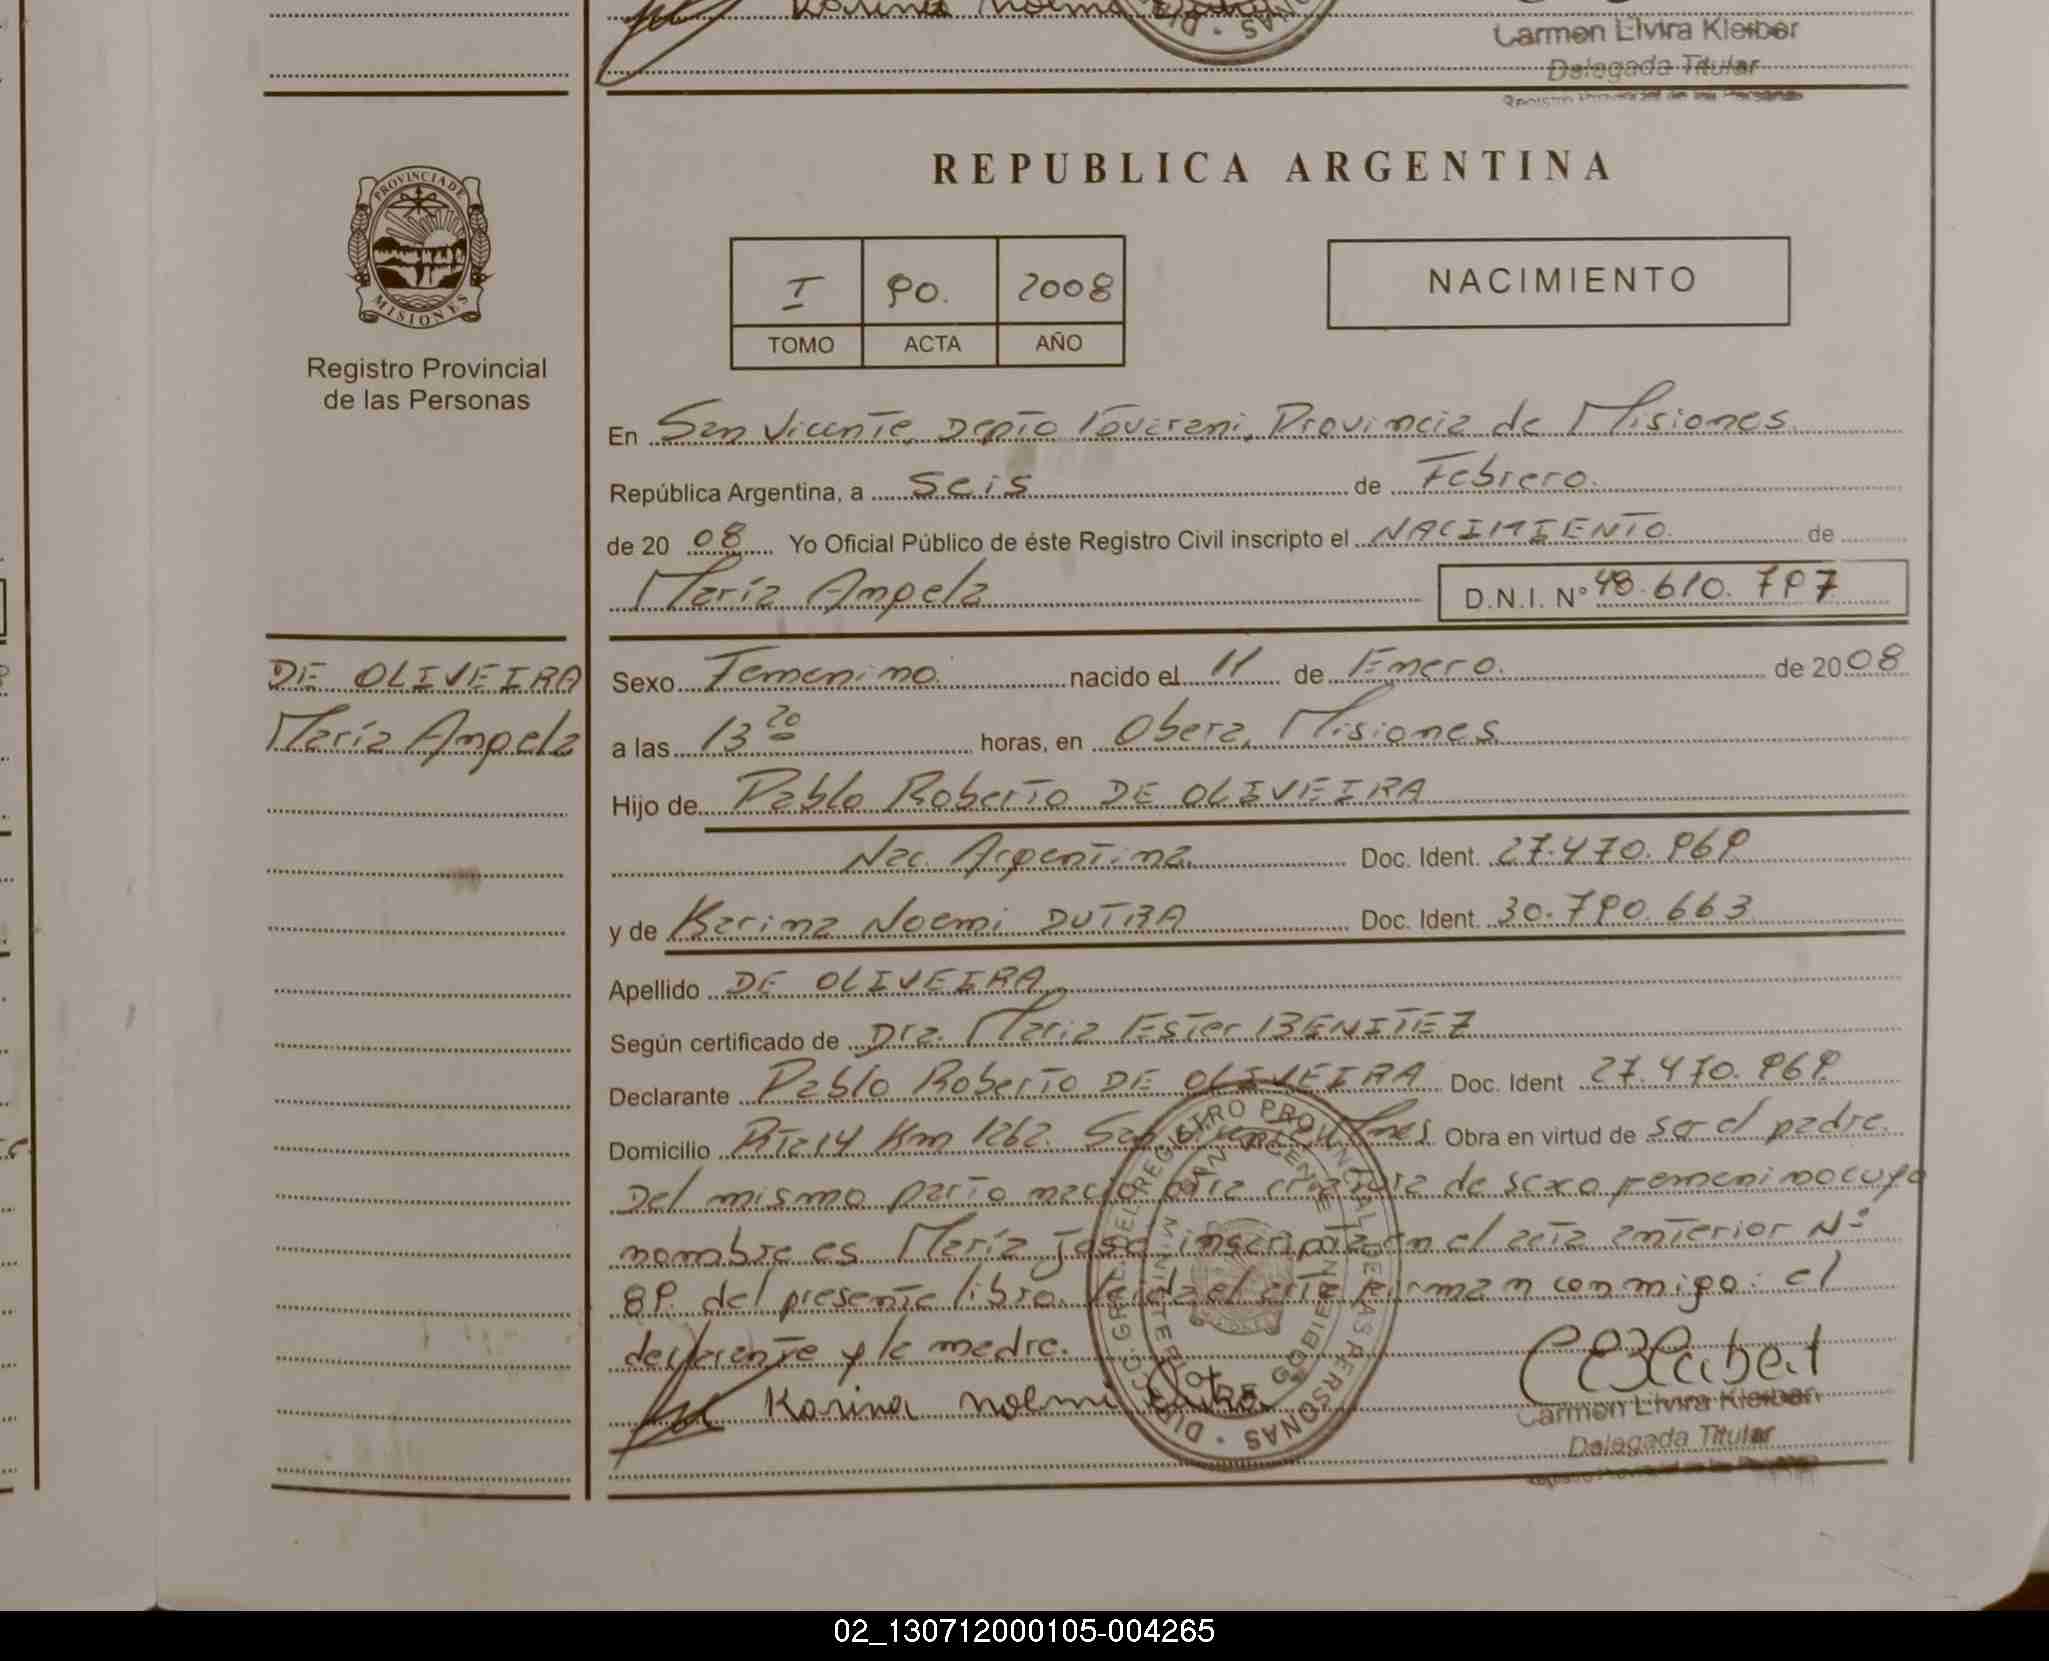 Karina Noemi Dutra
Carmen Elvira Kleiber
Delegada Titular
Registro Provincial de las Personas
PROVINCIA DE
MISIONES
Registro Provincial
de las Personas
REPUBLICA ARGENTINA
I 90. 2008
TOMO ACTA AÑO
NACIMIENTO
En San Vicente, Depto Guarani, Provincia de Misiones
República Argentina, a seis de Febrero.
de 20 08 Yo Oficial Público de éste Registro Civil inscripto el NACIMIENTO de
María Angela D.N.I. N° 48.610.797
DE OLIVEIRA
María Angela
Sexo Femenino. nacido el 11 de Enero. de 2008
a las 13 20 horas, en Obera, Misiones
Hijo de Pablo Roberto DE OLIVEIRA
Nac. Argentina Doc. Ident. 27.470.969
y de Karina Noemi DUTRA Doc. Ident. 30.790.663
Apellido DE OLIVEIRA
Según certificado de Dra. Maria Ester BENITEZ
Declarante Pablo Roberto DE OLIVEIRA Doc. Ident 27.470.969
Domicilio Rta 14 Km 1262. San Vicente, Mnes Obra en virtud de ser el padre.
Del mismo parto nacio otra criatura de sexo femenino cuyo
nombre es María José inscripta en el acta anterior N°
89. del presente libro. Leida el acta firman conmigo: el
declarante y la madre.
Karina Noemi Dutra
REGISTRO PROVINCIAL DE LAS PERSONAS
SAN VICENTE
Carmen Elvira Kleiber
Delegada Titular
02_130712000105-004265